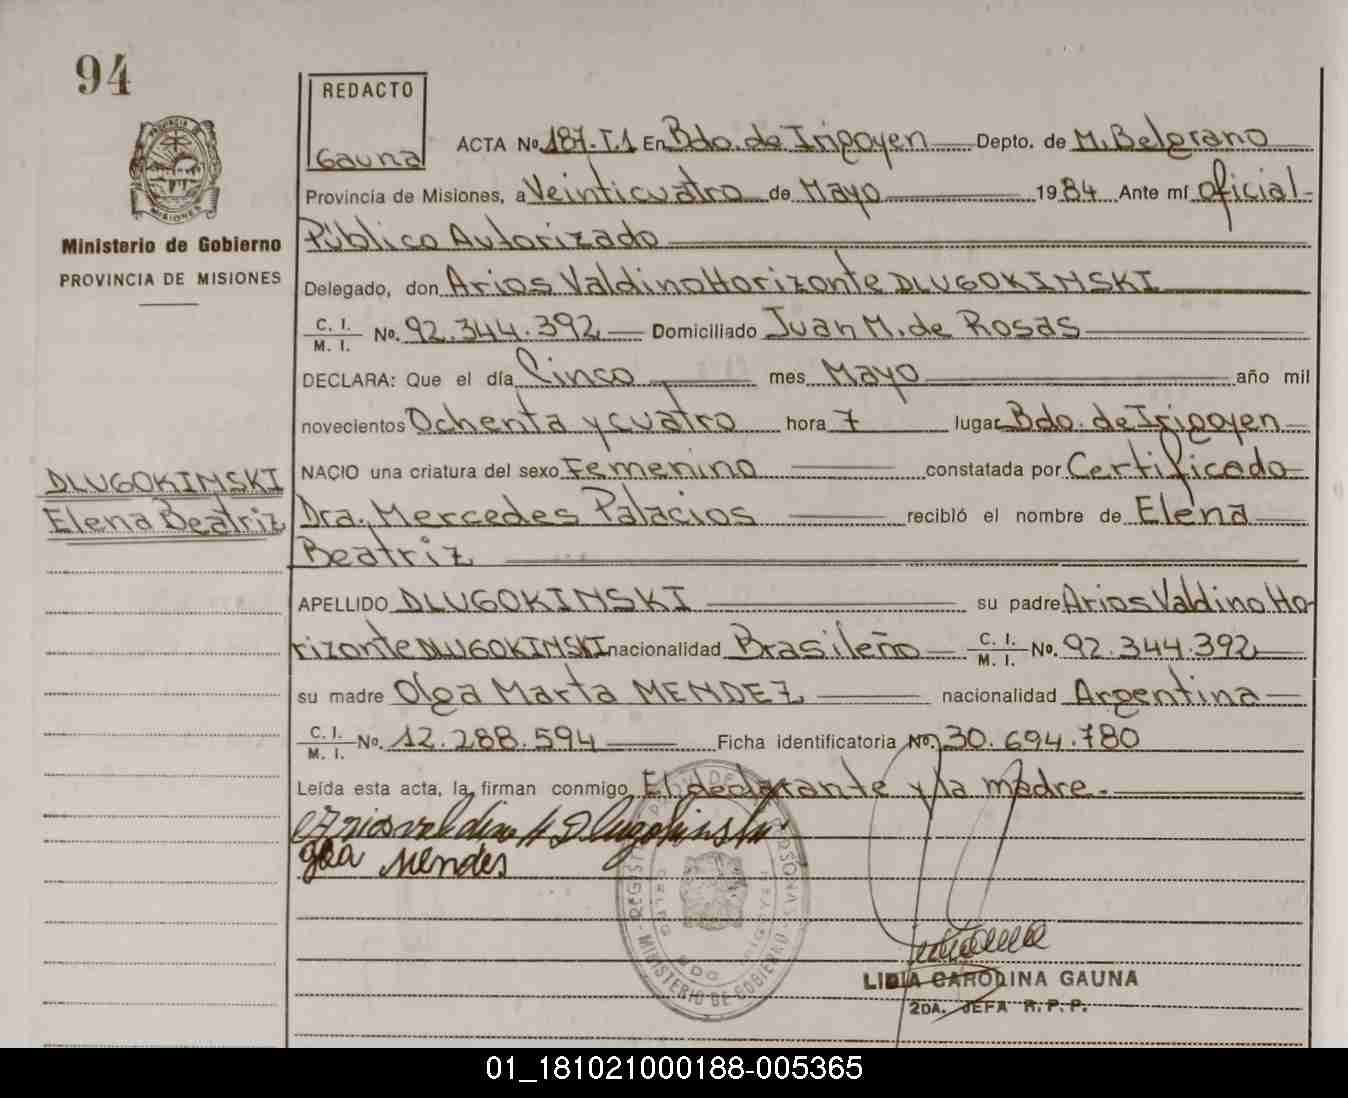 94
REDACTO
Gauna
PROVINCIA DE
MISIONES
Ministerio de Gobierno
PROVINCIA DE MISIONES
ACTA No. 187.T.1 En Bdo. de Irigoyen Depto. de M. Belgrano
Provincia de Misiones, a Veinticuatro de Mayo 1984 Ante mí oficial
Público Autorizado
Delegado, don Arios Valdino Horizonte DLUGOKINSKI
C. I.
M. I. No. 92.344.392 Domiciliado Juan M. de Rosas
DECLARA: Que el día Cinco mes Mayo año mil
novecientos Ochenta y cuatro hora 7 lugar Bdo. de Irigoyen
NACIO una criatura del sexo Femenino constatada por Certificado
DLUGOKINSKI
Elena Beatriz
Dra. Mercedes Palacios recibió el nombre de Elena
Beatriz
APELLIDO DLUGOKINSKI su padre Arios Valdino Ho-
rizonte DLUGOKINSKI nacionalidad Brasileño C. I.
M. I. No. 92.344.392
su madre Olga Marta MENDEZ nacionalidad Argentina
C. I.
M. I. No. 12.288.594 Ficha identificatoria No. 30.694.780
Leída esta acta, la firman conmigo El declarante y la madre.
Arios valdino H Dlugokinski
Mendes
MINISTERIO DE GOBIERNO
LIDIA CAROLINA GAUNA
2DA. JEFA R.P.P.
01_181021000188-005365